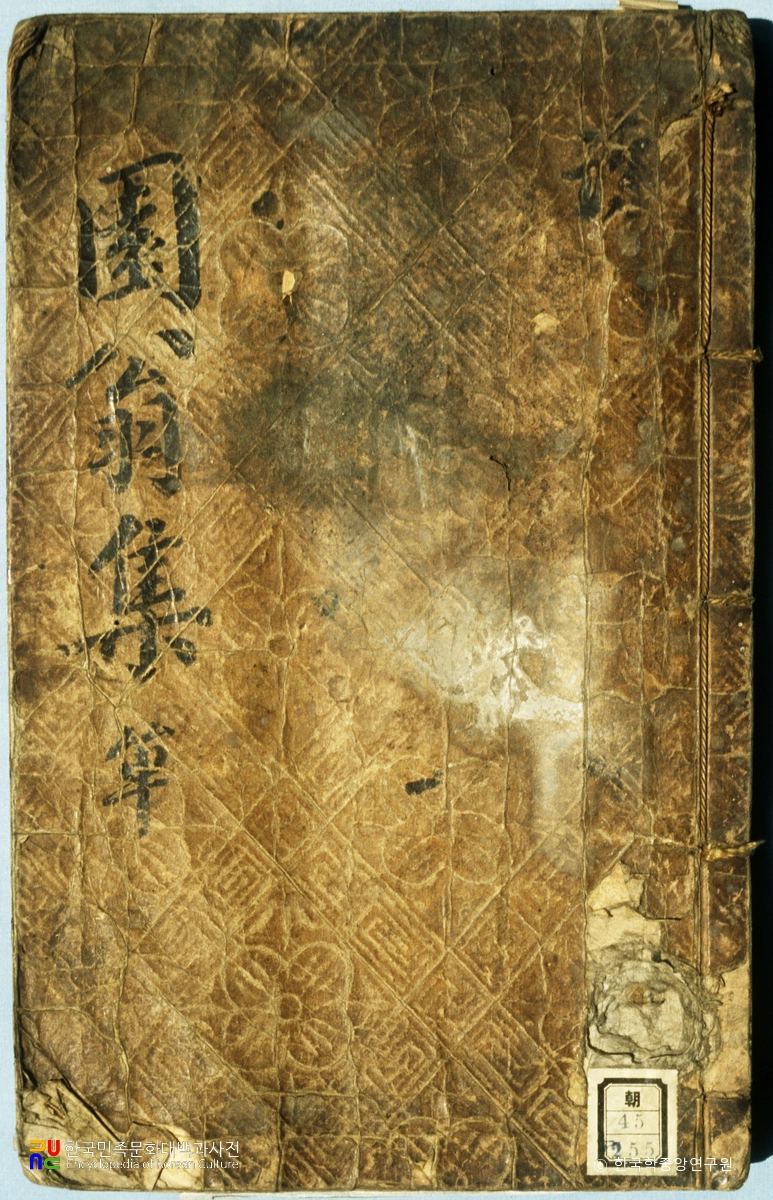 園翁集 單
朝
45
255
한국민족문화대백과사전
Encyclopedia of Korean Culture
© 한국학중앙연구원